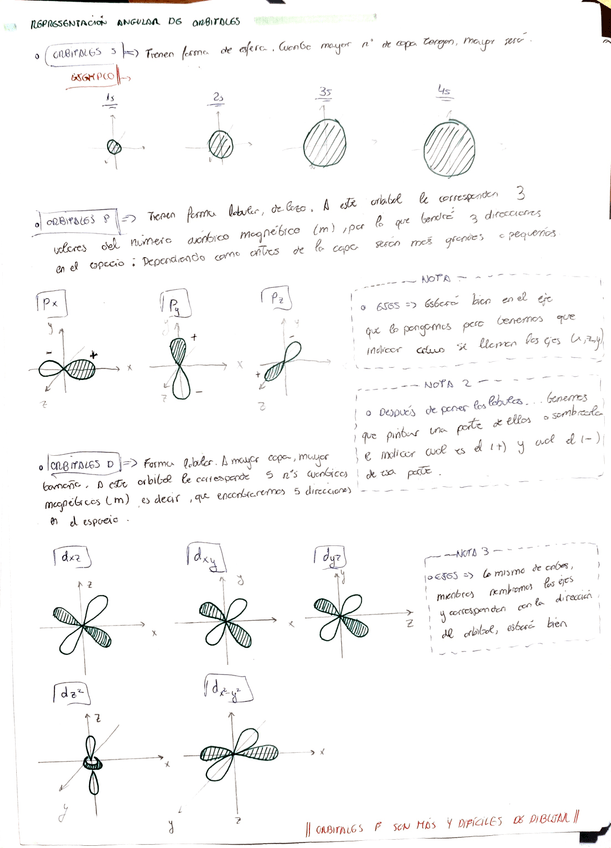 REPRESENTACIÓN ANGULAR DE ORBITALES
o ORBITALES S => Tienen forma de esfera, Cuanto mayor nº de capa tengan, mayor será.
EJEMPLO
1s 2s 3s 4s
o ORBITALES P => Tienen forma lobular, de lazo. A este orbital le corresponden 3
valores del número cuántico magnético (m), por lo que tendrá 3 direcciones
en el espacio. Dependiendo como antes de la capa serán más grandes o pequeños.
Px Py Pz
y - + x z
+ - x z
y - + x z
NOTA
o EJES => Estará bien en el eje
que lo pongamos pero tenemos que
indicar cómo se llaman los ejes (x,z,y)
NOTA 2
o Después de poner los lóbulos... tenemos
que pintar una parte de ellos o sombrearla
e indicar cual es el (+) y cual el (-)
de esa parte.
o ORBITALES D => Forma lobular. A mayor capa, mayor
tamaño. A este orbital le corresponde 5 nºs cuánticos
magnéticos (m) es decir, que encontraremos 5 direcciones
en el espacio.
dxz dxy dyz
z x
y x
y z
NOTA 3
o EJES => Lo mismo de antes,
mientras nombremos los ejes
y correspondan con la dirección
del orbital, estará bien
dz² dx²-y²
z x y
x y z
|| ORBITALES F SON MÁS Y DIFÍCILES DE DIBUJAR ||